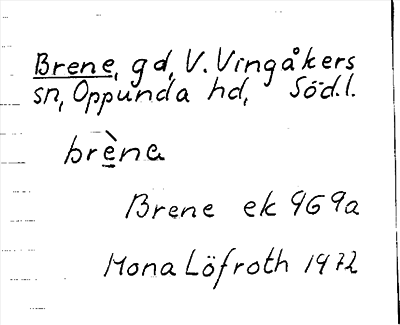 Brene, gd, V. Vingåkers
sn, Oppunda hd, Södl.
brèna
Brene ek 9G9a
Mona Löfroth 1972